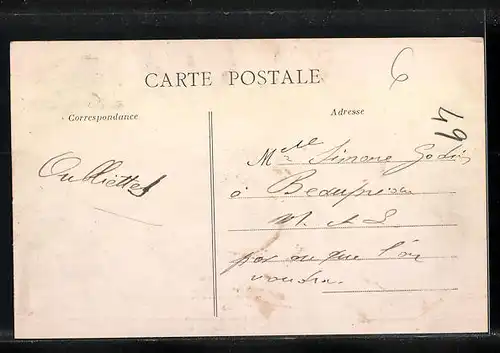 CARTE POSTALE
6
Correspondance
Adresse
49
Oubliettes
Melle Simone Godin
à Beaupréau
M. et L.
par ou que l'on
voudra.